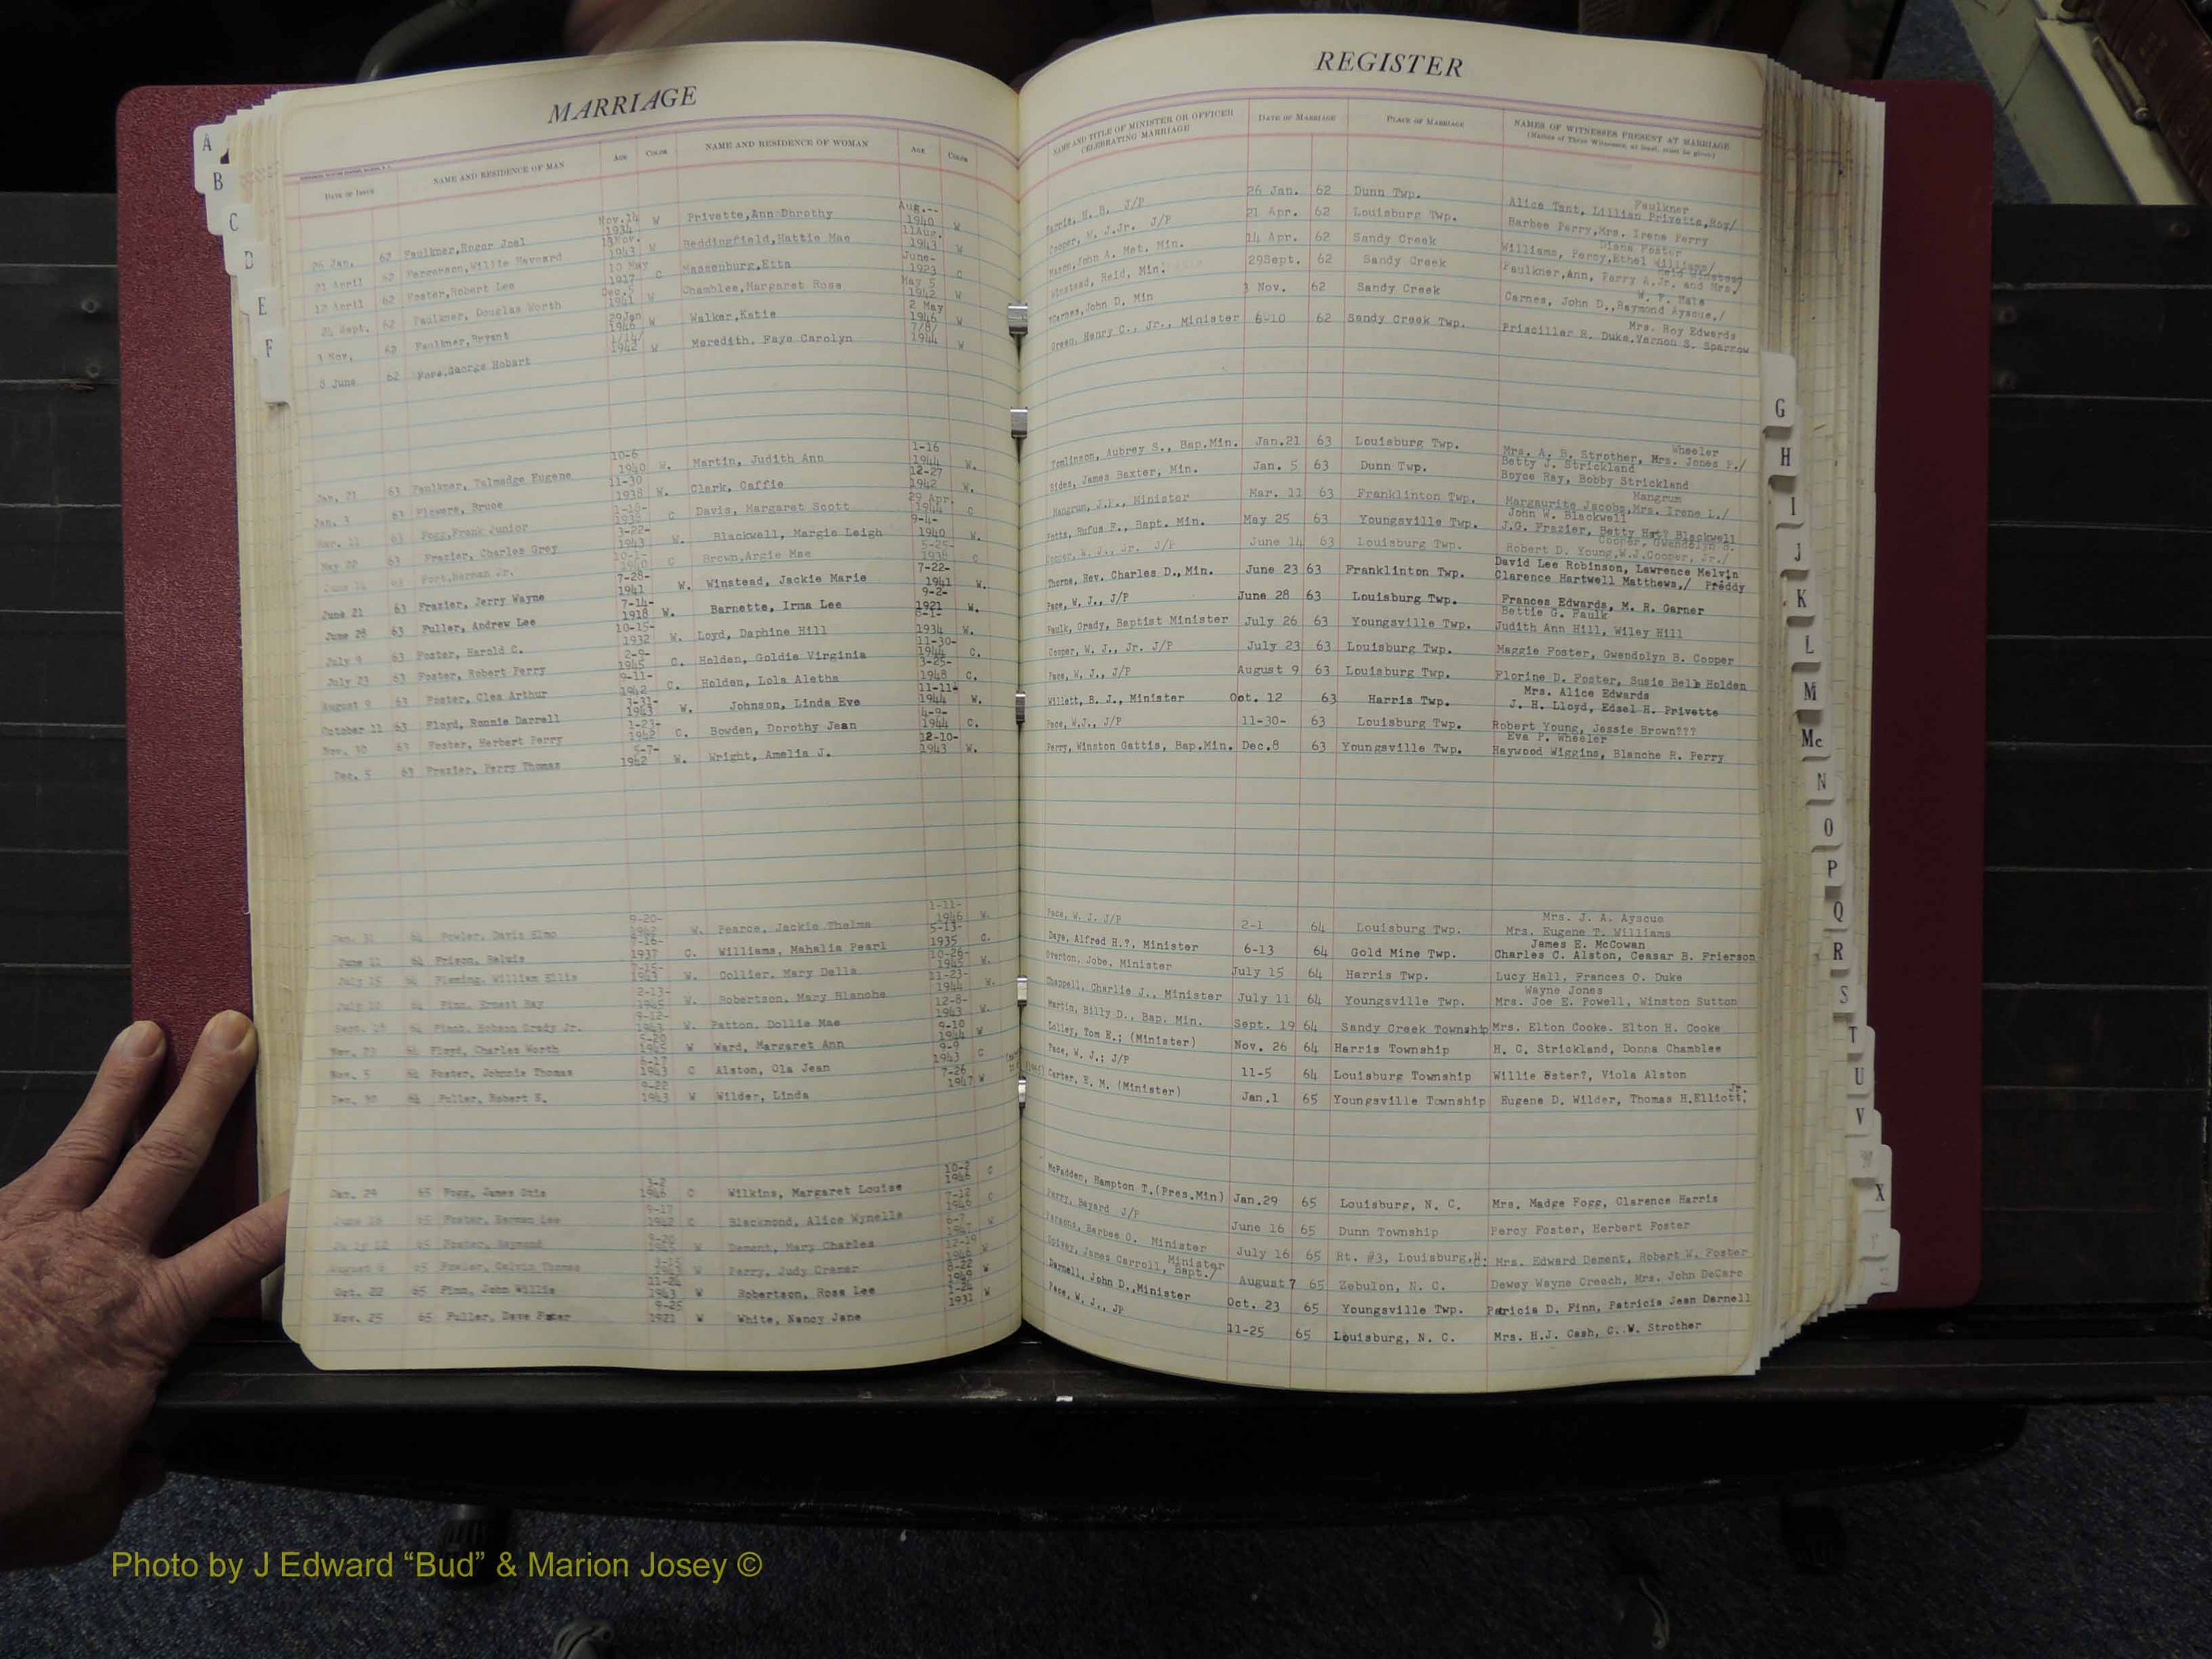 MARRIAGE
DATE OF ISSUE NAME AND RESIDENCE OF MAN AGE COLOR NAME AND RESIDENCE OF WOMAN AGE COLOR
26 Jan. 62 Faulkner,Roger Joel Nov.14 1934 W Privette,Ann Dorothy Aug.-- 1940 W
21 April 62 Fergerson,Willie Hayward 1943 W Beddingfield,Hattie Mae 11Aug. 1943 W
12 April 62 Foster,Robert Lee 10 May 1917 C Massenburg,Etta June- 1923 C
24 Sept. 62 Faulkner, Douglas Worth Dec.5 1941 W Chamblee,Margaret Rose May 5 1942 W
1 Nov. 62 Faulkner,Bryant 29Jan 1946 W Walker,Katie 2 May 1946 W
8 June 62 George Hobart 1942 W Meredith, Faye Carolyn 7/8/ 1944 W
Jan. 21 63 Faulkner, Talmadge Eugene 10-6 1940 W. Martin, Judith Ann 1-16 1944 W.
Jan. 3 63 Flowers, Bruce 11-30 1938 W. Clark, Caffie 12-27 1942 W.
Mar. 11 63 Fogg,Frank Junior C Davis, Margaret Scott 29 Apr. 1944 C
May 22 63 Frazier, Charles Grey 3-22- 1943 W. Blackwell, Margie Leigh 9-4- 1940 W.
63 Fort,Herman Jr. C Brown,Argie Mae 5-25- 1938 C
June 21 63 Frazier, Jerry Wayne 7-28- 1941 W. Winstead, Jackie Marie 7-22- 1941 W.
June 28 63 Fuller, Andrew Lee 7-14- 1918 W. Barnette, Irma Lee 9-2- 1921 W.
July 9 63 Foster, Harold C. 10-15- 1932 W. Loyd, Daphine Hill 1934 W.
July 23 63 Foster, Robert Perry 2-9- 1945 C. Holden, Goldie Virginia 11-30- 1944 C.
August 9 63 Foster, Clea Arthur 9-11- 1942 C. Holden, Lola Aletha 3-25- 1948 C.
October 11 63 Floyd, Ronnie Darrell 1943 W. Johnson, Linda Eve 11-11- 1944 W.
Nov. 30 63 Foster, Herbert Perry 1-23- 1942 C. Bowden, Dorothy Jean 4-9- 1944 C.
Dec. 5 63 Frazier, Perry Thomas 5-7- 1942 W. Wright, Amelia J. 12-10- 1943 W.
Jan. 31 64 Fowler, Davis Elmo 9-20- 1942 W. Pearce, Jackie Thelma 1-11- 1946 W.
June 11 64 7-16- 1937 C. Williams, Mahalia Pearl 5-13- 1935 C.
July 15 64 Fleming, William Ellis 1943 W. Collier, Mary Della 10-26- 1945 W.
July 10 64 Finn, Ernest Ray 2-13- 1945 W. Robertson, Mary Blanche 11-23- 1944 W.
Sept. 64 Finch, Hobson Grady Jr. 9-12- 1943 W. Patton, Dollie Mae 12-8- 1943 W.
Nov. 64 Floyd, Charles Worth 1945 W Ward, Margaret Ann 9-10 1944 W
Nov. 5 64 Foster, Johnnie Thomas 6-17 1943 C Alston, Ola Jean 9-9 1943 C
Dec. 30 64 Fuller, Robert 9-22 1943 W Wilder, Linda 7-26 1947 W
Jan. 29 65 Fogg, James Otis 3-2 1946 C Wilkins, Margaret Louise 10-2 1946 C
June 65 Foster, Herman Lee 9-17 1942 C Blackmond, Alice Wynella 7-12 C
July 12 65 Foster, Raymond W Dement, Mary Charles W
August 65 Fowler, Calvin Thomas W Perry, Judy Cramer 12-19 1946 W
Oct. 22 65 Finn, John Willis 1943 W Robertson, Rosa Lee W
Nov. 25 65 Fuller, Dave 9-25 1921 W White, Nancy Jane 1931 W
REGISTER
NAME AND TITLE OF MINISTER OR OFFICER CELEBRATING MARRIAGE DATE OF MARRIAGE PLACE OF MARRIAGE NAMES OF WITNESSES PRESENT AT MARRIAGE
(Names of Three Witnesses, at least, must be given)
Faulkner
Harris, H. B. J/P 26 Jan. 62 Dunn Twp. Alice Tant, Lillian Privette,Roy/
Cooper, W. J.Jr. J/P 21 Apr. 62 Louisburg Twp. Barbee Perry,Mrs. Irene Perry
Diene Foster
Mason,John A. Met. Min. 14 Apr. 62 Sandy Creek Williams, Percy,Ethel Williams/
Reid Winstead
Winstead, Reid, Min. 29Sept. 62 Sandy Creek Faulkner,Ann, Perry A.Jr. and Mrs./
W. F. Hate
Carnes,John D. Min 3 Nov. 62 Sandy Creek Carnes, John D.,Raymond Ayscue,/
Mrs. Roy Edwards
Green, Henry C., Jr., Minister 6-10 62 Sandy Creek Twp. Prisciller R. Duke,Vernon S. Sparrow
Wheeler
Tomlinson, Aubrey S., Bap.Min. Jan.21 63 Louisburg Twp. Mrs. A. B. Strother, Mrs. Jones P./
Betty J. Strickland
Sides, James Baxter, Min. Jan. 5 63 Dunn Twp. Boyce Ray, Bobby Strickland
Mangrum
Mangrum, J.F., Minister Mar. 11 63 Franklinton Twp. Margaurite Jacobs,Mrs. Irene L./
John W. Blackwell
Potts, Rufus F., Bapt. Min. May 25 63 Youngsville Twp. J.G. Frazier, Betty Blackwell
Cooper, Gwendolyn B.
Cooper, W. J., Jr. J/P June 14 63 Louisburg Twp. Robert D. Young,W.J.Cooper, Jr./
David Lee Robinson, Lawrence Melvin
Thorne, Rev. Charles D., Min. June 23 63 Franklinton Twp. Clarence Hartwell Matthews,/ Preddy
Pace, W. J., J/P June 28 63 Louisburg Twp. Frances Edwards, M. R. Garner
Bettie G. Faulk
Faulk, Grady, Baptist Minister July 26 63 Youngsville Twp. Judith Ann Hill, Wiley Hill
Cooper, W. J., Jr. J/P July 23 63 Louisburg Twp. Maggie Foster, Gwendolyn B. Cooper
Pace, W. J., J/P August 9 63 Louisburg Twp. Florine D. Foster, Susie Bell Holden
Mrs. Alice Edwards
Willett, B. J., Minister Oct. 12 63 Harris Twp. J. H. Lloyd, Edsel H. Privette
Pace, W,J., J/P 11-30- 63 Louisburg Twp. Robert Young, Jessie Brown???
Eva P. Wheeler
Perry, Winston Gattis, Bap.Min. Dec.8 63 Youngsville Twp. Haywood Wiggins, Blanche R. Perry
Mrs. J. A. Ayscue
Pace, W. J. J/P 2-1 64 Louisburg Twp. Mrs. Eugene T. Williams
James E. McCowan
Days, Alfred H.?, Minister 6-13 64 Gold Mine Twp. Charles C. Alston, Ceasar B. Frierson
Overton, Jobe, Minister July 15 64 Harris Twp. Lucy Hall, Frances O. Duke
Wayne Jones
Chappell, Charlie J., Minister July 11 64 Youngsville Twp. Mrs. Joe E. Powell, Winston Sutton
Martin, Billy D., Bap. Min. Sept. 19 64 Sandy Creek Township Mrs. Elton Cooke. Elton H. Cooke
Lolley, Tom E.; (Minister) Nov. 26 64 Harris Township H. C. Strickland, Donna Chamblee
Pace, W. J.; J/P 11-5 64 Louisburg Township Willie Ester?, Viola Alston
Jr.
Carter, E. M. (Minister) Jan.1 65 Youngsville Township Eugene D. Wilder, Thomas H.Elliott,
McFadden, Hampton T.(Pres.Min) Jan.29 65 Louisburg, N. C. Mrs. Madge Fogg, Clarence Harris
Perry, Bayard J/P June 16 65 Dunn Township Percy Foster, Herbert Foster
Parsons, Barbee O. Minister July 16 65 Rt. #3, Louisburg,N. Mrs. Edward Dement, Robert W. Foster
Minister
Spivey, James Carroll, Bapt./ August 7 65 Zebulon, N. C. Dewey Wayne Creech, Mrs. John DeCaro
Darnell, John D.,Minister Oct. 23 65 Youngsville Twp. Patricia D. Finn, Patricia Jean Darnell
Pace, W. J., JP 11-25 65 Louisburg, N. C. Mrs. H.J. Cash, C. W. Strother
A
B
C
D
E
F
G
H
I
J
K
L
M
Mc
N
O
P
Q
R
S
T
U
V
W
X
Photo by J Edward “Bud” & Marion Josey ©